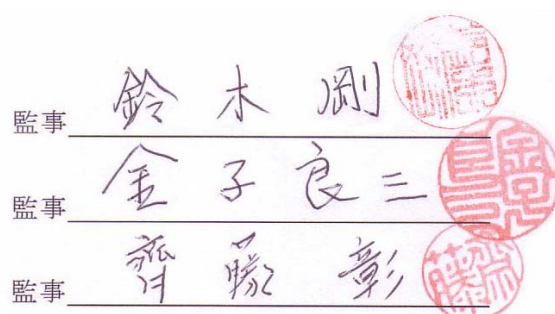 監事 鈴木剛
監事 金子良三
監事 齊藤彰